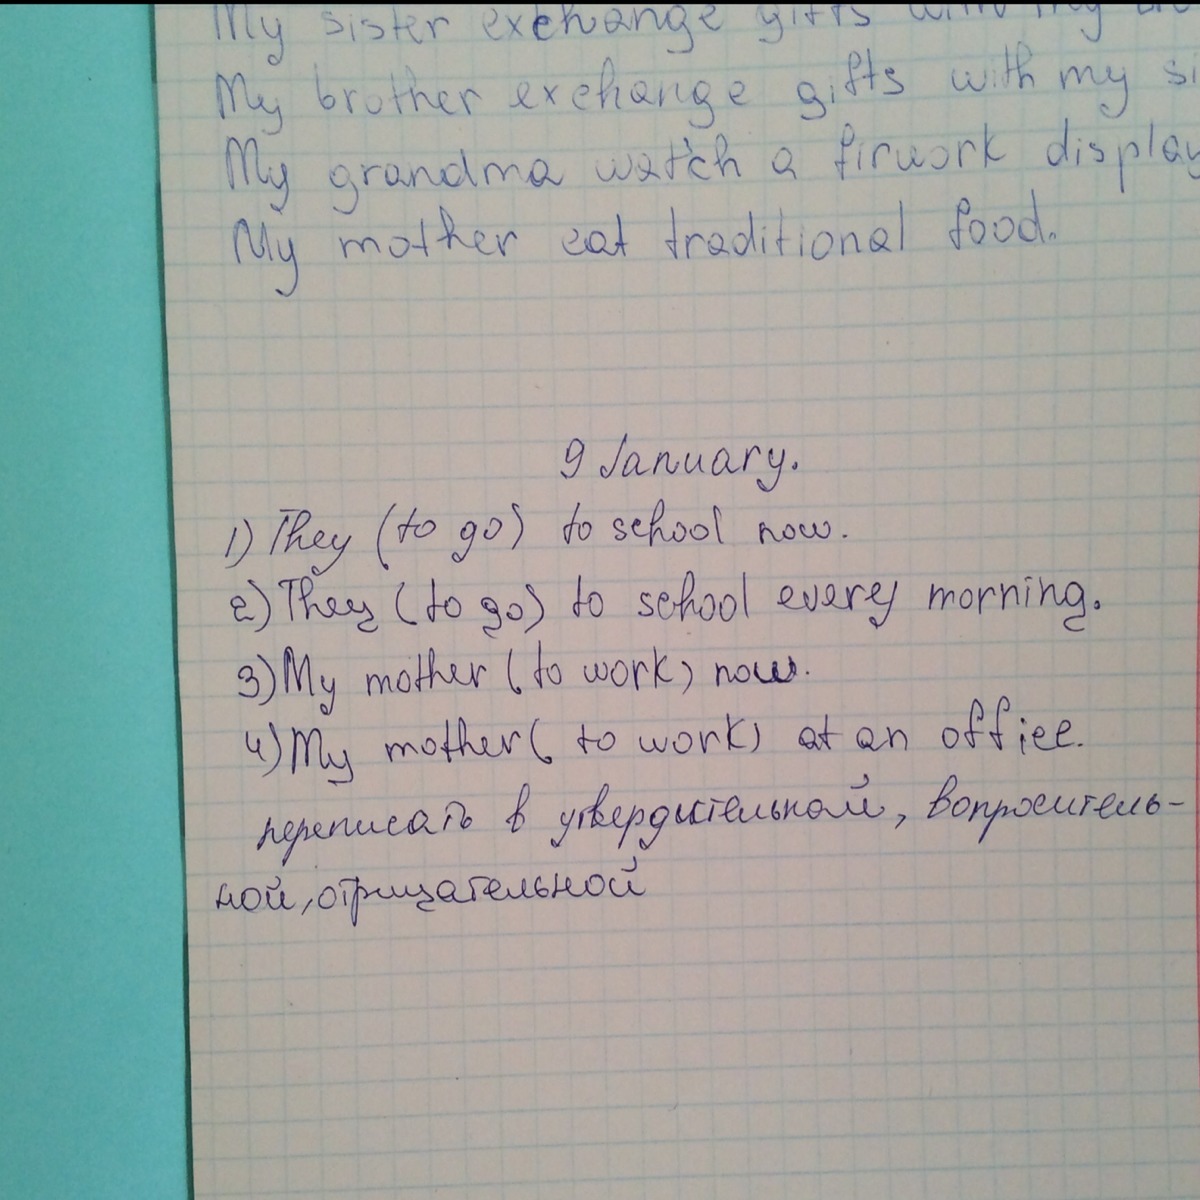 My sister exchange gifts with my
My brother exchange gifts with my
My grandma watch a firwork display
My mother eat traditional food.
9 January.
1) They (to go) to school now.
2) They (to go) to school every morning.
3) My mother (to work) now.
4) My mother (to work) at an office.
переписать в утвердительной, вопроситель-
ной, отрицательной